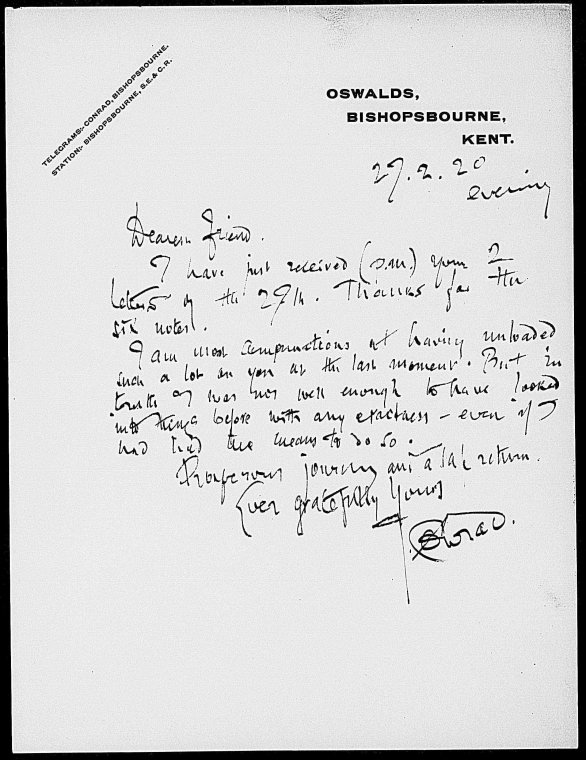 TELEGRAMS:- CONRAD, BISHOPSBOURNE.
STATION:- BISHOPSBOURNE, S.E. & C.R.
OSWALDS,
BISHOPSBOURNE,
KENT.
27.2.20
evening
Dearest friend.
I have just received (5.m.) your 2
letters of the 27th. Thanks for the
six notes.
I am most compunctious at having unloaded
such a lot on you at the last moment. But in
truth I was not well enough to have looked
into things before with any exactness – even if I
had had the means to do so.
Prosperous journey and a safe return.
Ever gratefully Yours
J. Conrad.